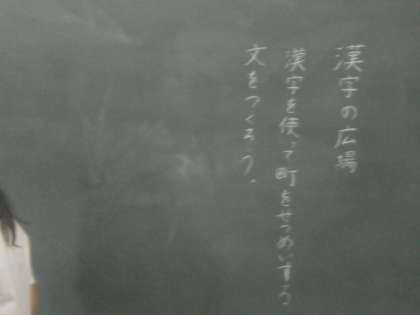 漢字の広場
漢字を使って町をせつめいする
文をつくろう。